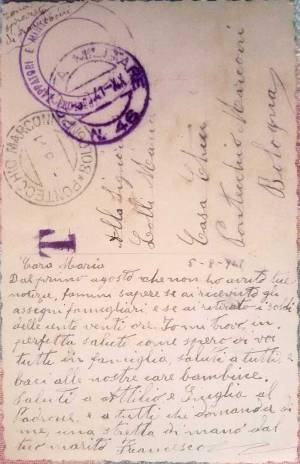 POSTA MILITARE
N. 46
41-XX
PONTECCHIO MARCONI
BOLOGNA
ZAPPATORI E
T
Alla Signora
Lolli Maria
Casa Chiù
Pontecchio Marconi
Bologna
5-8-941
Cara Maria
Dal primo agosto che non ho avuto tue
notizie, fammi sapere se ai ricevuto gli
assegni famigliari e se ai ritirato i soldi
delle cento venti ore. Io mi trovo in
perfetta salute come spero di voi
tutti in famiglia, saluti a tutti, e
baci alle nostre care bambine.
Saluti a Attilio e al
Padrone, e a tutti che domanda di
me, una stretta di mano dal
tuo marito Francesco